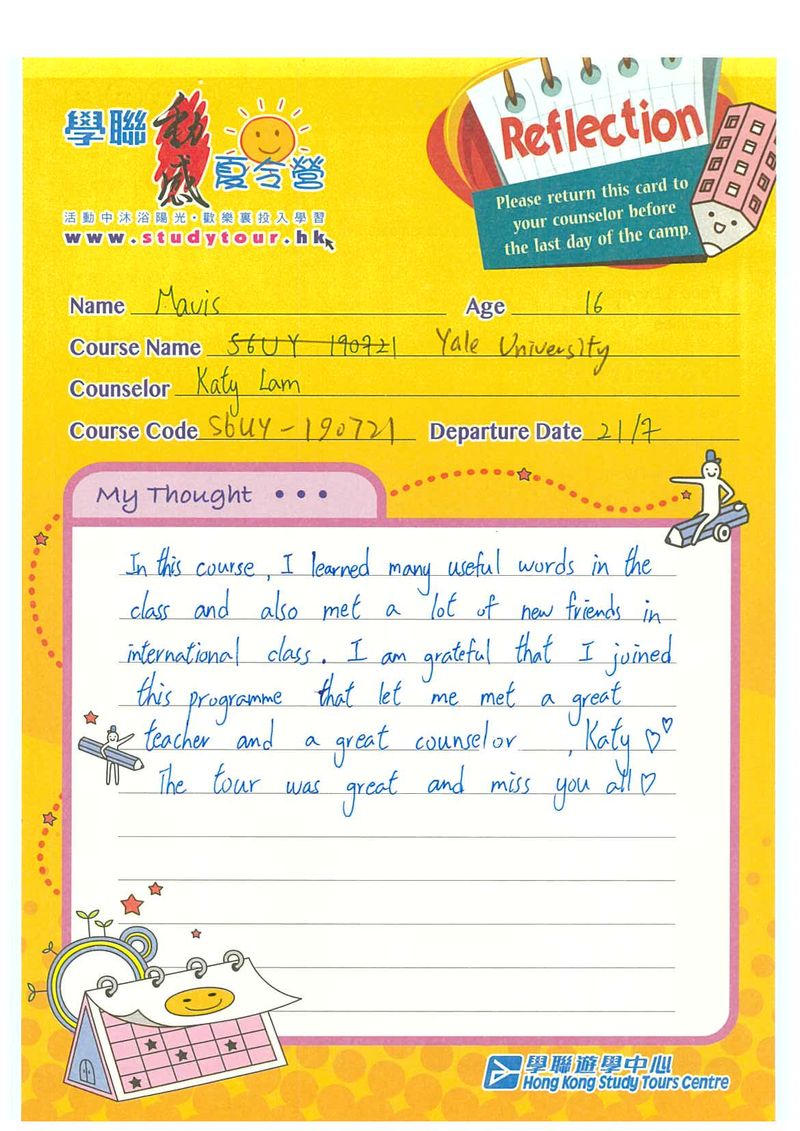 學聯動感夏令營
活動中沐浴陽光·歡樂裏投入學習
www.studytour.hk
Reflection
Please return this card to
your counselor before
the last day of the camp.
Name Mavis Age 16
Course Name S6UY 190721 Yale University
Counselor Katy Lam
Course Code S6UY-190721 Departure Date 21/7
My Thought • • •
In this course, I learned many useful words in the
class and also met a lot of new friends in
international class. I am grateful that I joined
this programme that let me met a great
teacher and a great counselor, Katy ♡♡
The tour was great and miss you all♡
學聯遊學中心
Hong Kong Study Tours Centre